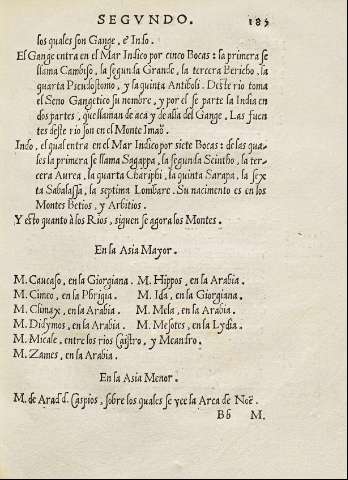 SEGVNDO. 185
los quales son Gange, è Indo.
El Gange entra en el Mar Indico por cinco Bocas: la primera se
llama Cambiso, la segunda Grande, la tercera Bericho, la
quarta Pseudostomo, y la quinta Antiboli. Deste rio toma
el Seno Gangetico su nombre, y por el se parte la India en
dos partes, que llaman de acà y de alla del Gange. Las fuen
tes deste rio son en el Monte Imaũ.
Indo, el qual entra en el Mar Indico por siete Bocas: de las qua-
les la primera se llama Sagappa, la segunda Scintho, la ter-
cera Aurea, la quarta Chariphi, la quinta Sarapa, la sex
ta Sabalassa, la septima Lombare. Su nacimiento es en los
Montes Betios, y Arbitios.
Y esto quanto à los Rios, siguen se agora los Montes.
En la Asia Mayor.
M. Caucaso, en la Giorgiana. M. Hippos, en la Arabia.
M. Cinco, en la Phrigia. M. Ida, en la Giorgiana.
M. Climax, en la Arabia. M. Mela, en la Arabia.
M. Didymos, en la Arabia. M. Mesotes, en la Lydia.
M. Micale, entre los rios Caistro, y Meandro.
M. Zames, en la Arabia.
En la Asia Menor.
M. de Arad d. Caspios, sobre los quales se yce la Arca de Noë.
Bb M.